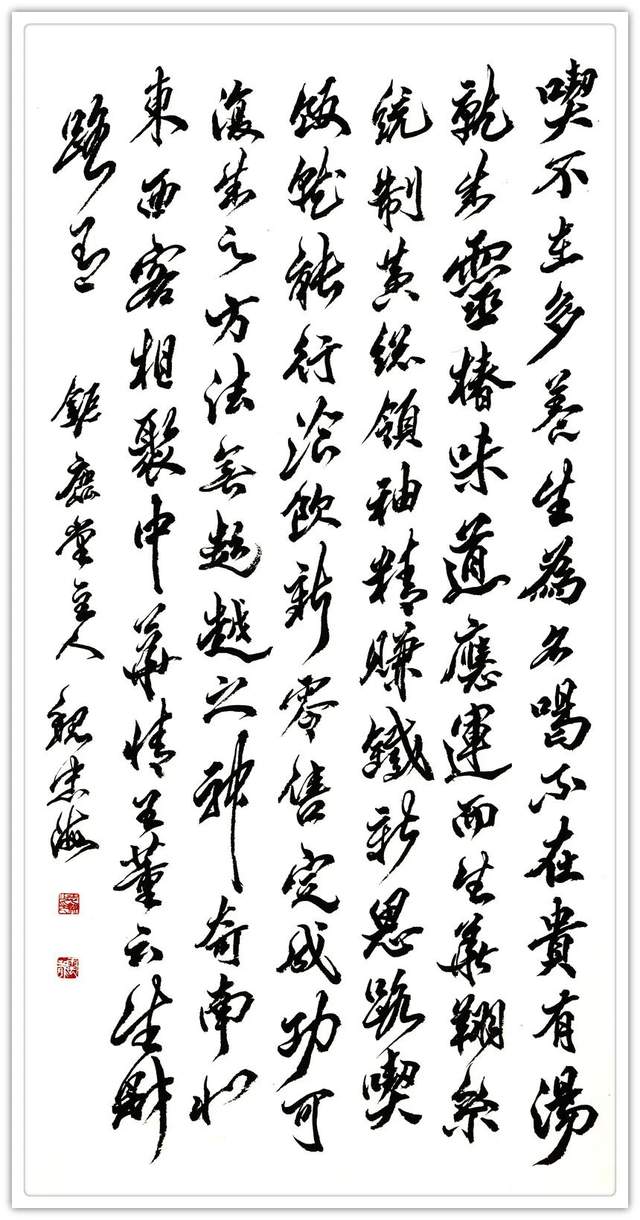 喫不在多養生為名喝不在貴有湯
就靈椿味道應運而生華翔系
統制黃總領袖精賺鐵新思路喫
飯就能行飡飲新零售定成功可
復制之方法無超越之神奇南北
東西客相聚中華情王董云生財
路
鉅鹿堂主人 魏忠海